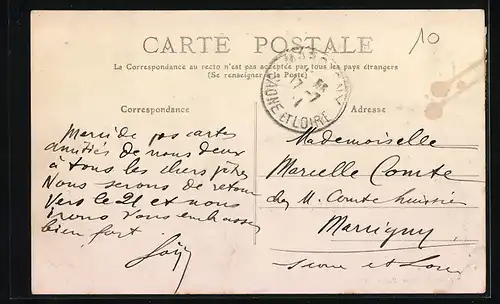 10
CARTE POSTALE
La Correspondance au recto n'est pas acceptée par tous les pays étrangers
(Se renseigner à la Poste)
Correspondance
Adresse
SAONE ET LOIRE
17-7
Merci de vos cartes
amitiés de nous deux
à tous les chers
Nous serons de retour
vers le 21 et nous
irons vous embrasser
bien fort.
Mademoiselle
Marcelle Comte
chez M. Comte huissier
Marcigny
Saone et Loire